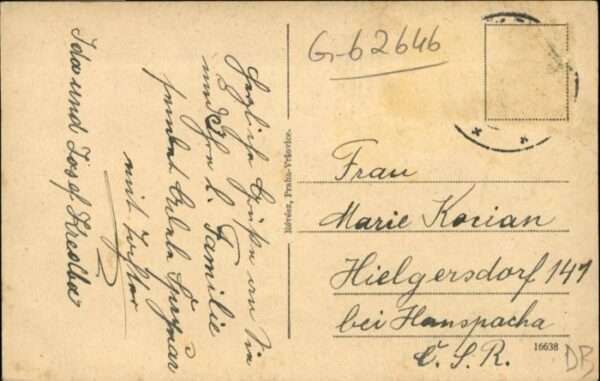 G-b 2646
Herzliche Grüße an Sie
und Ihre l. Familie
sendet
mit Tochter
Ida und Josef
Révész, Praha-Vršovice.
Frau
Marie Kocian
Hielgersdorf 141
bei Hanspacha
Č. S. R.
16638
DB